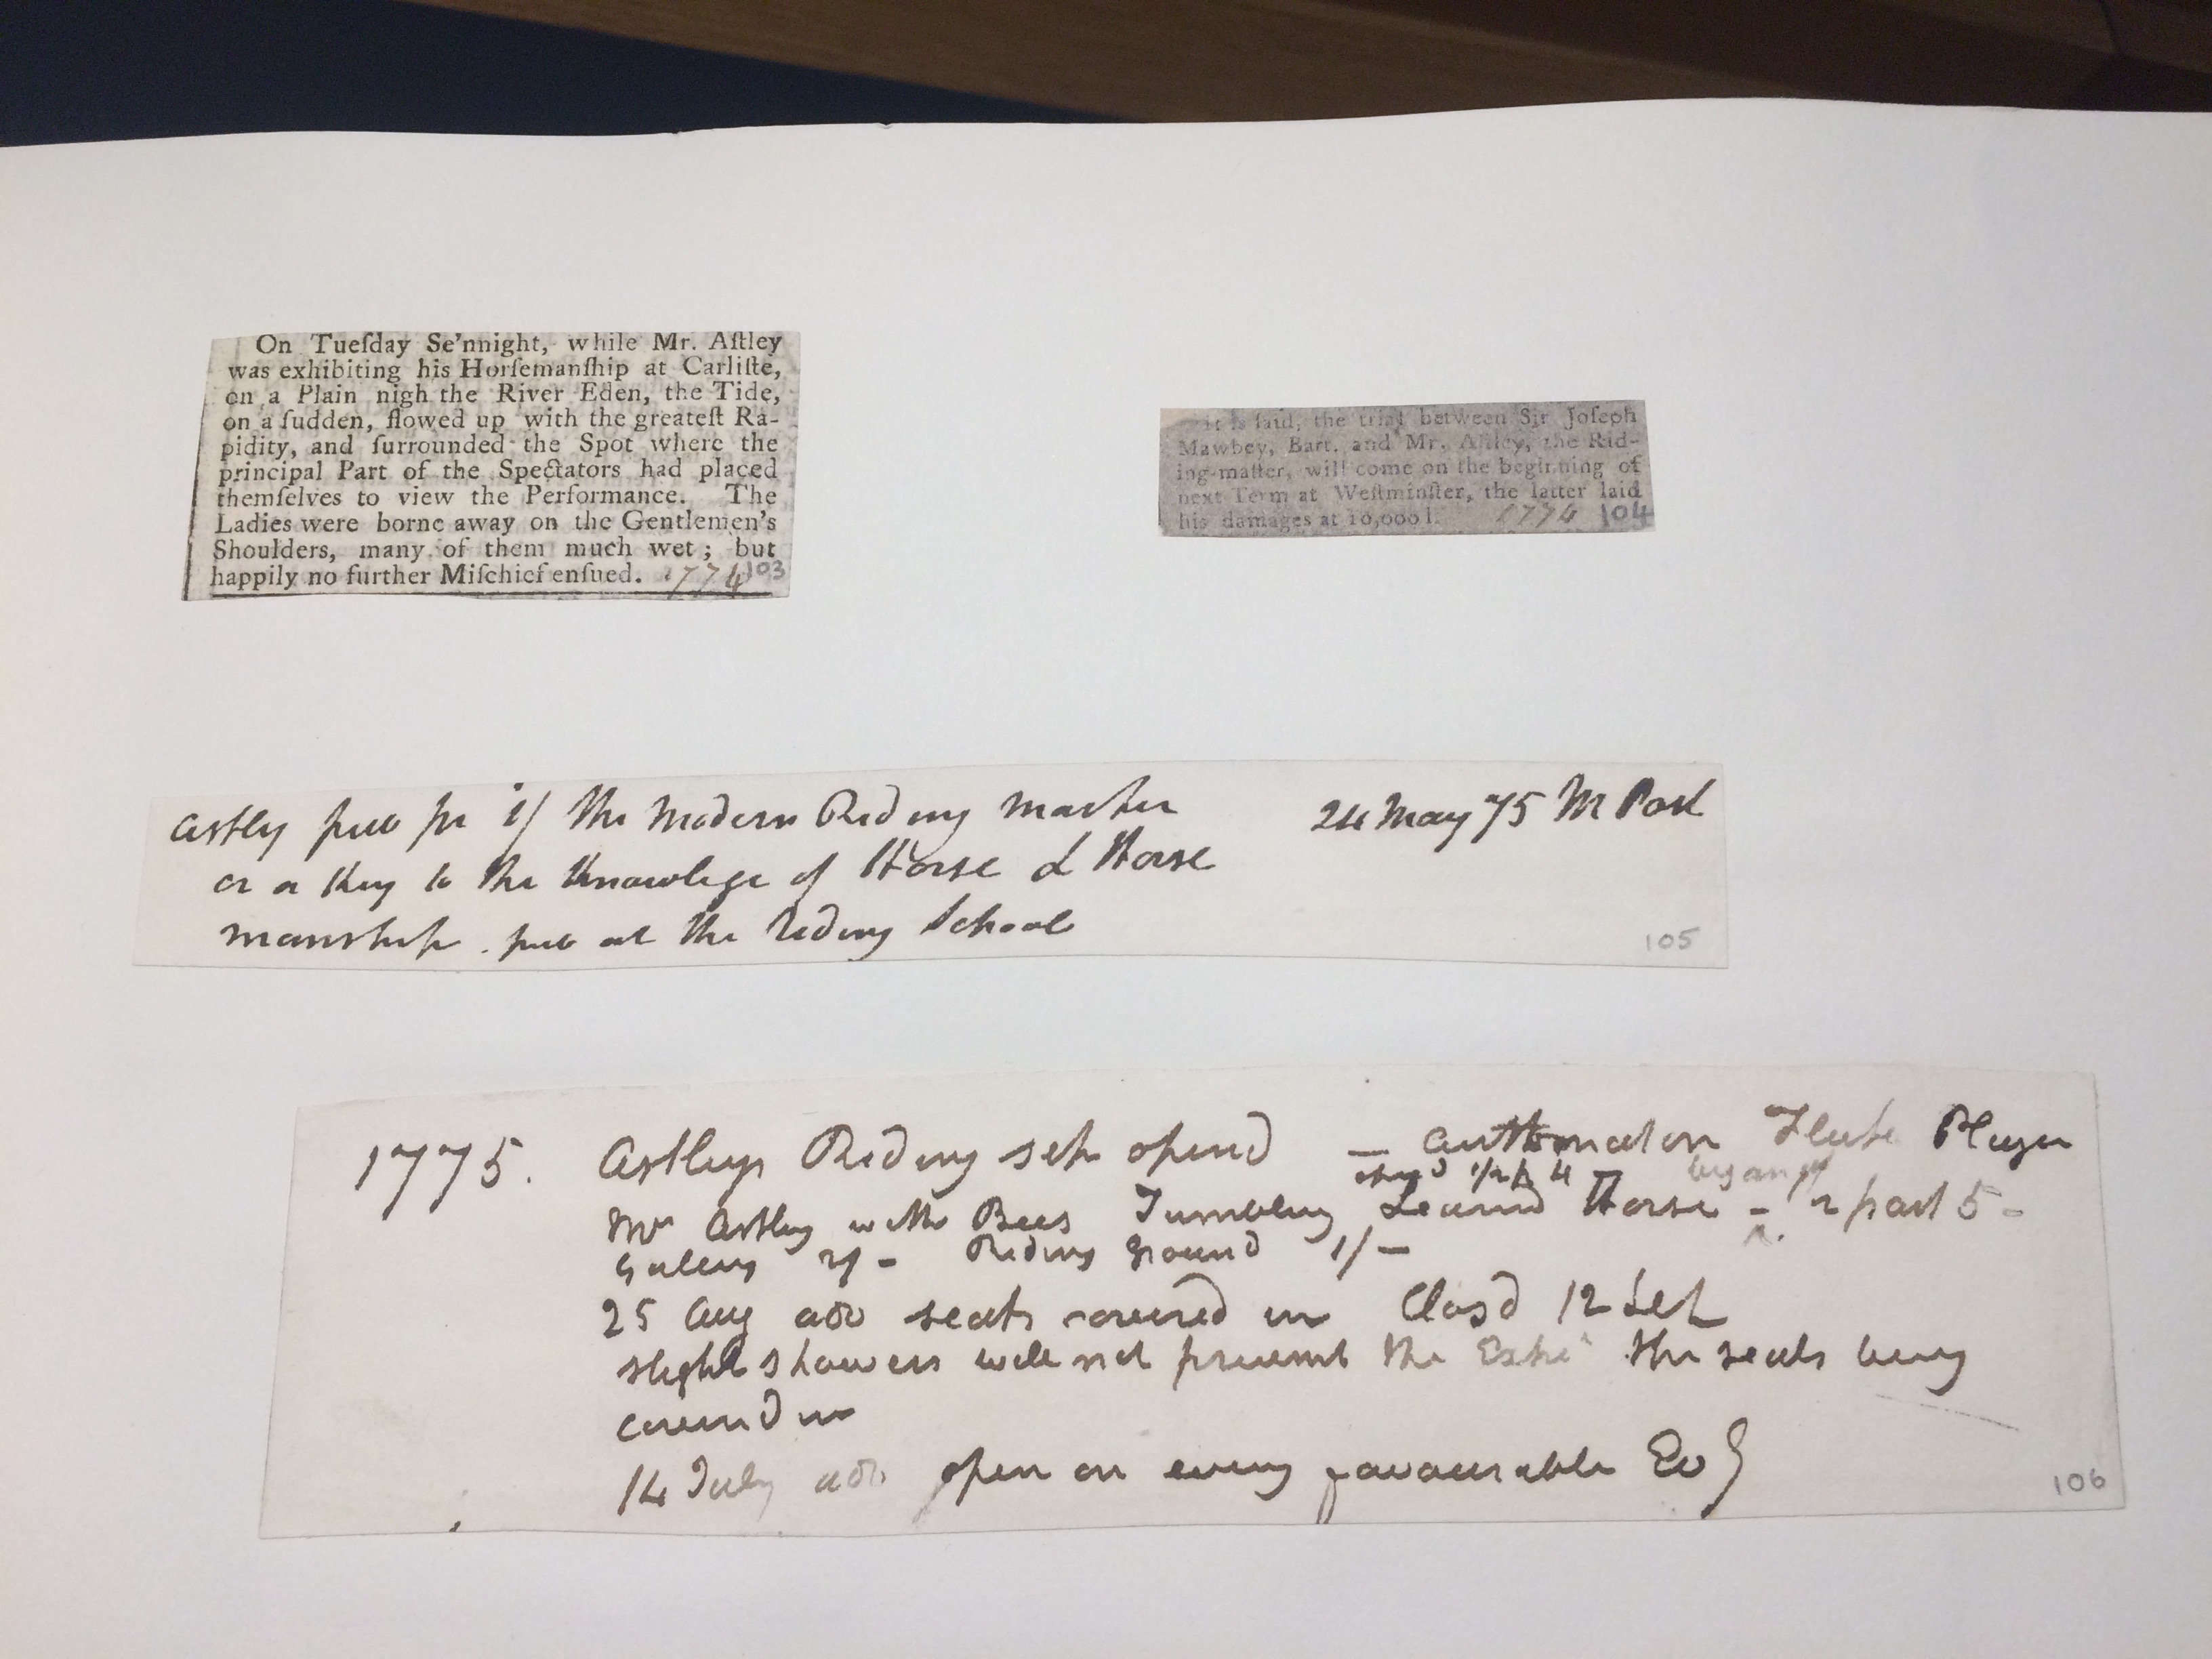 On Tueſday Se'nnight, while Mr. Aſtley
was exhibiting his Horſemanſhip at Carliſle,
on a Plain nigh the River Eden, the Tide,
on a ſudden, flowed up with the greateſt Ra-
pidity, and ſurrounded the Spot where the
principal Part of the Spectators had placed
themſelves to view the Performance. The
Ladies were borne away on the Gentlemen's
Shoulders, many of them much wet; but
happily no further Miſchief enſued. 1774 103
It is ſaid, the trial between Sir Joſeph
Mawbey, Bart. and Mr. Aſtley, the Rid-
ing-maſter, will come on the beginning of
next Term at Weſtminſter, the latter laid
his damages at 10,000l. 1774 104
Astley pub pr 1/ The Modern Riding Master 24 May 75 M Post
or a Key to the Knowlege of Horse & Horse
manship. pub at the Riding School
105
1775. Astleys Riding sch opend — Auttomaton Flute Player
opend 1/2 p 4 began
Mr Astley with Bees Tumbling Learnd Horse - 2 past 5 -
Gallery 2/- Riding Ground 1/-
25 Aug seats coverd in Closd 12 Set
slight showers will not prevent the Exhi the seats being
coverd in
14 July open on every favourable Evg
106